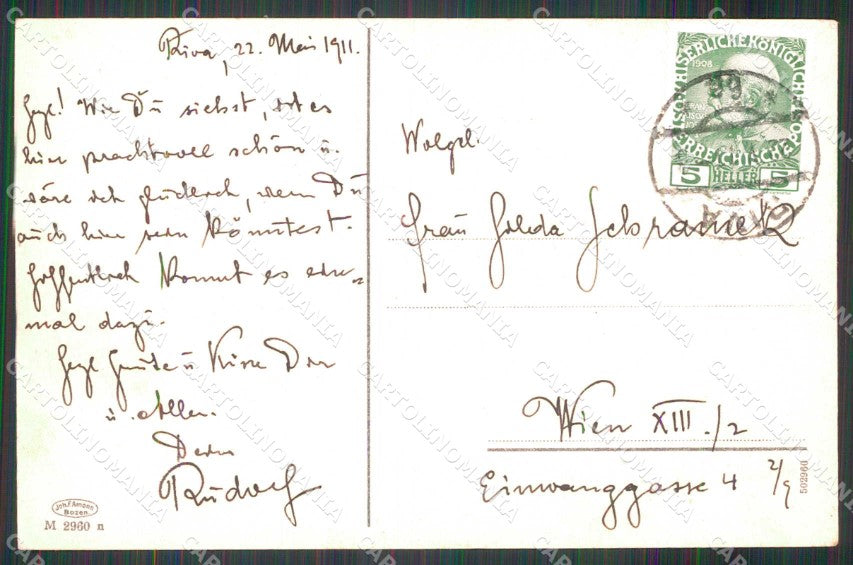 Riva, 22. Mai 1911.
Wie Du siehst, ist es
hier prachtvoll schön u.
wäre ich glücklich, wenn Du
auch hier sein könntest.
Hoffentlich kommt es ein-
mal dazu.
Grüße u. Küsse Dir
u. Allen.
Dein
Rudolf
Joh. F. Amonn
Bozen
M 2960 n
KAISERLICHE KÖNIGLICHE
ÖSTERREICHISCHE POST
1908
5 HELLER 5
RIVA
Wolgeb.
Frau
Wien XIII./2
Einwanggasse 4
502960
CARTOLINOMANIA